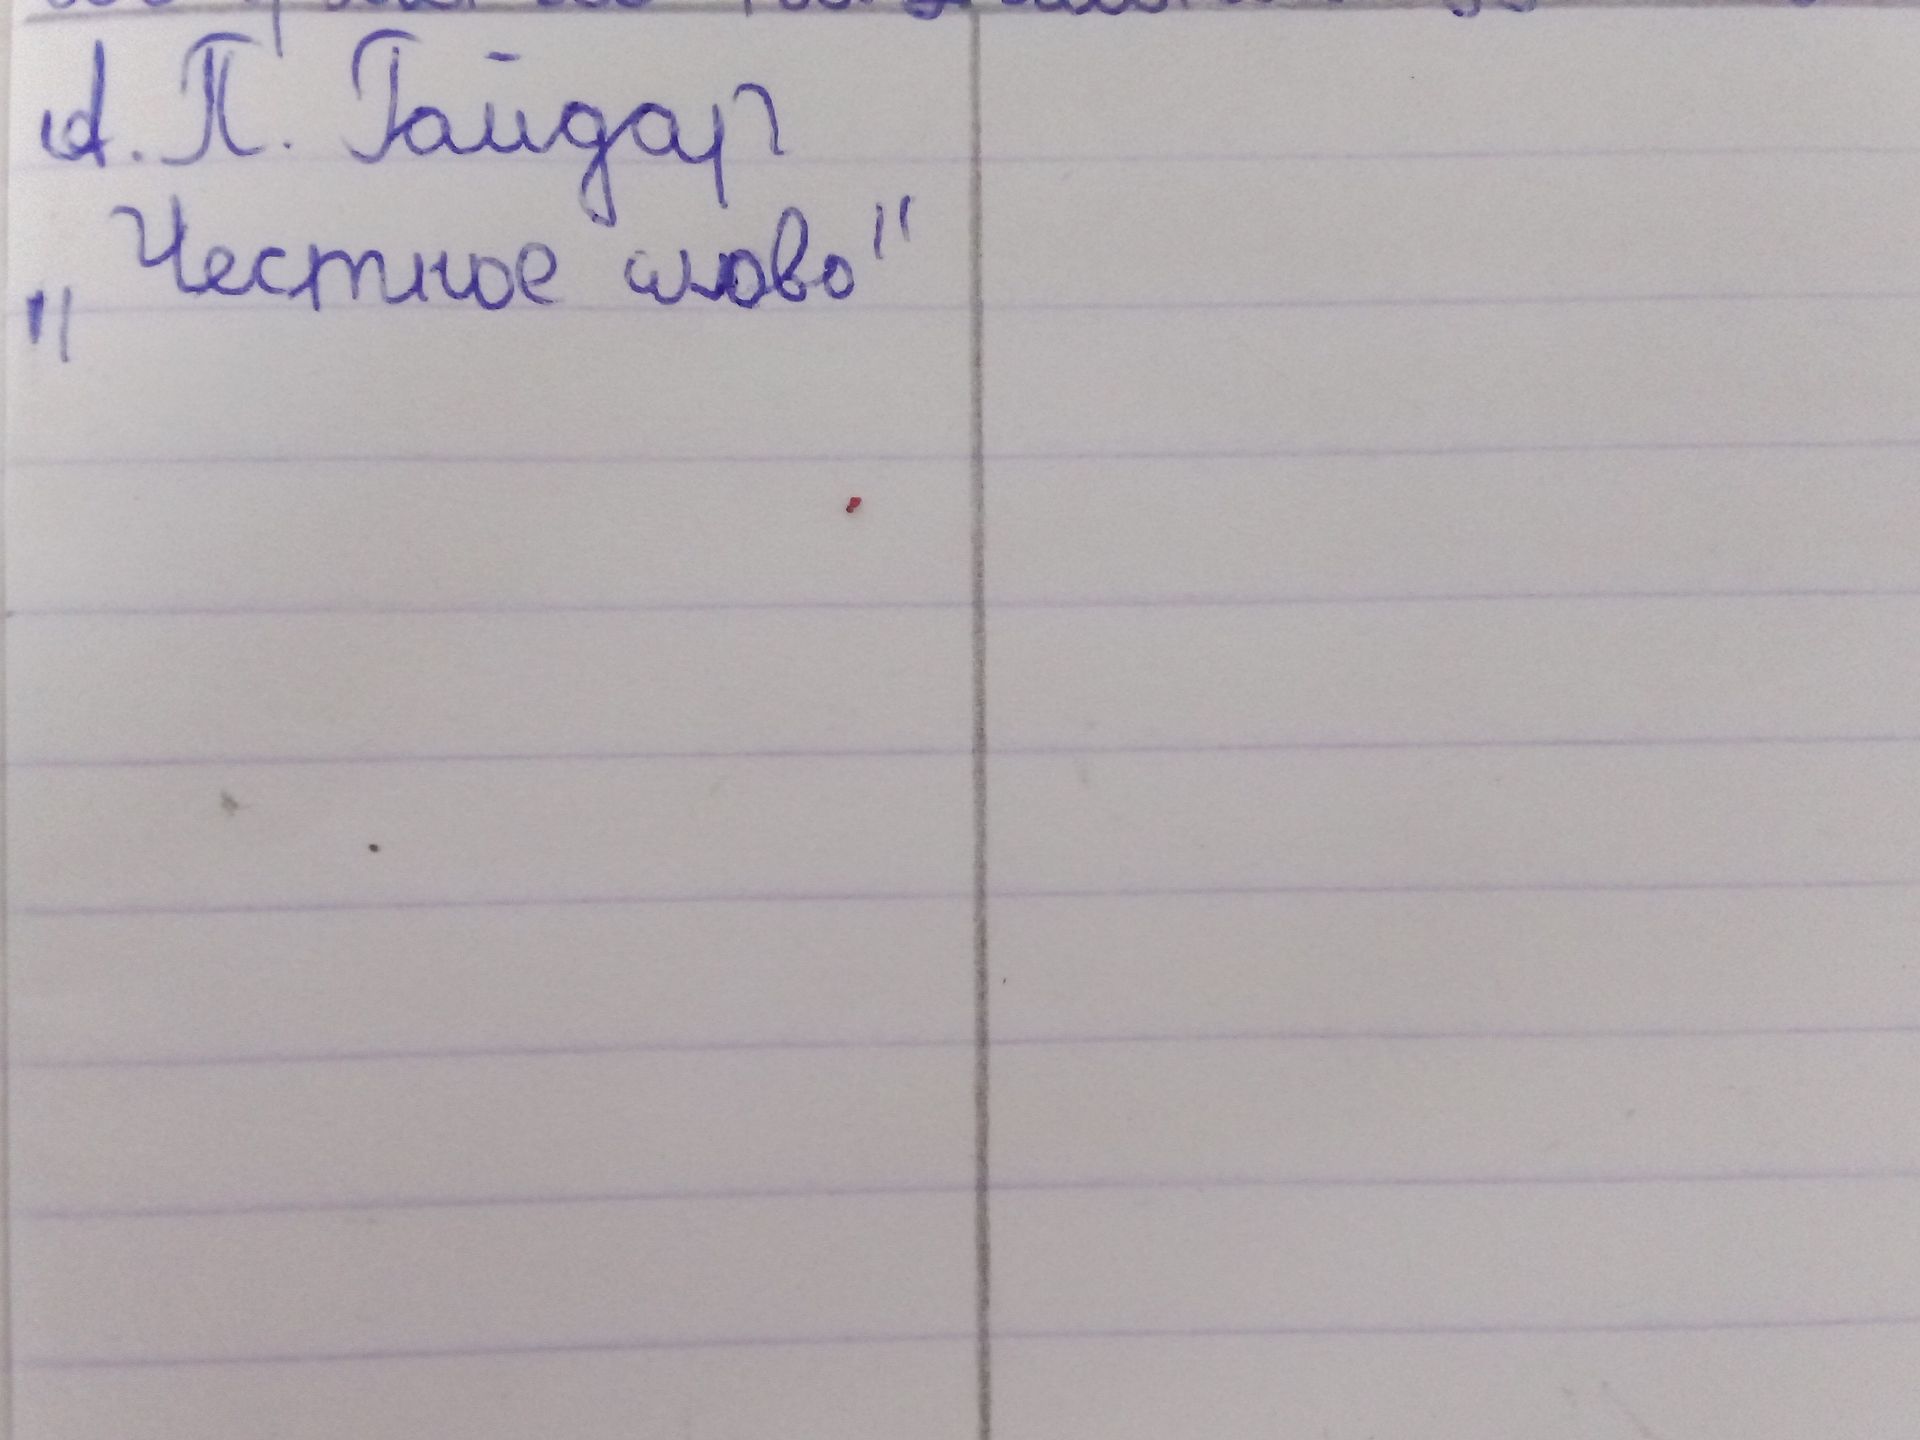 А. П. Гайдар
„Честное слово"